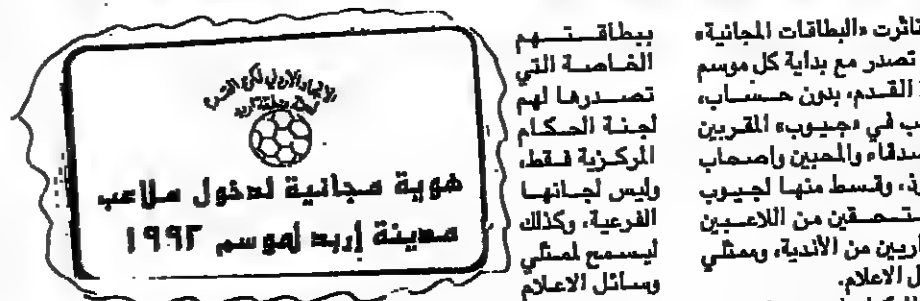 تاثرت «البطاقات المجانية»
تصدر مع بداية كل موسم
القدم، بدون حساب،
في «جيوب» المقربين
والمحبين واصحاب
وقسط منها لجيوب
من اللاعبين
من الأندية، وممثلي
الاعلام.
ببطاقتهم
الخاصة التي
تصدرها لهم
لجنة الحكام
المركزية فقط،
وليس لجانها
الفرعية، وكذلك
ليسمح لممثلي
وسائل الاعلام
الاتحاد الأردني لكرة القدم
هوية مجانية لدخول ملاعب
مدينة إربد لموسم ١٩٩٢